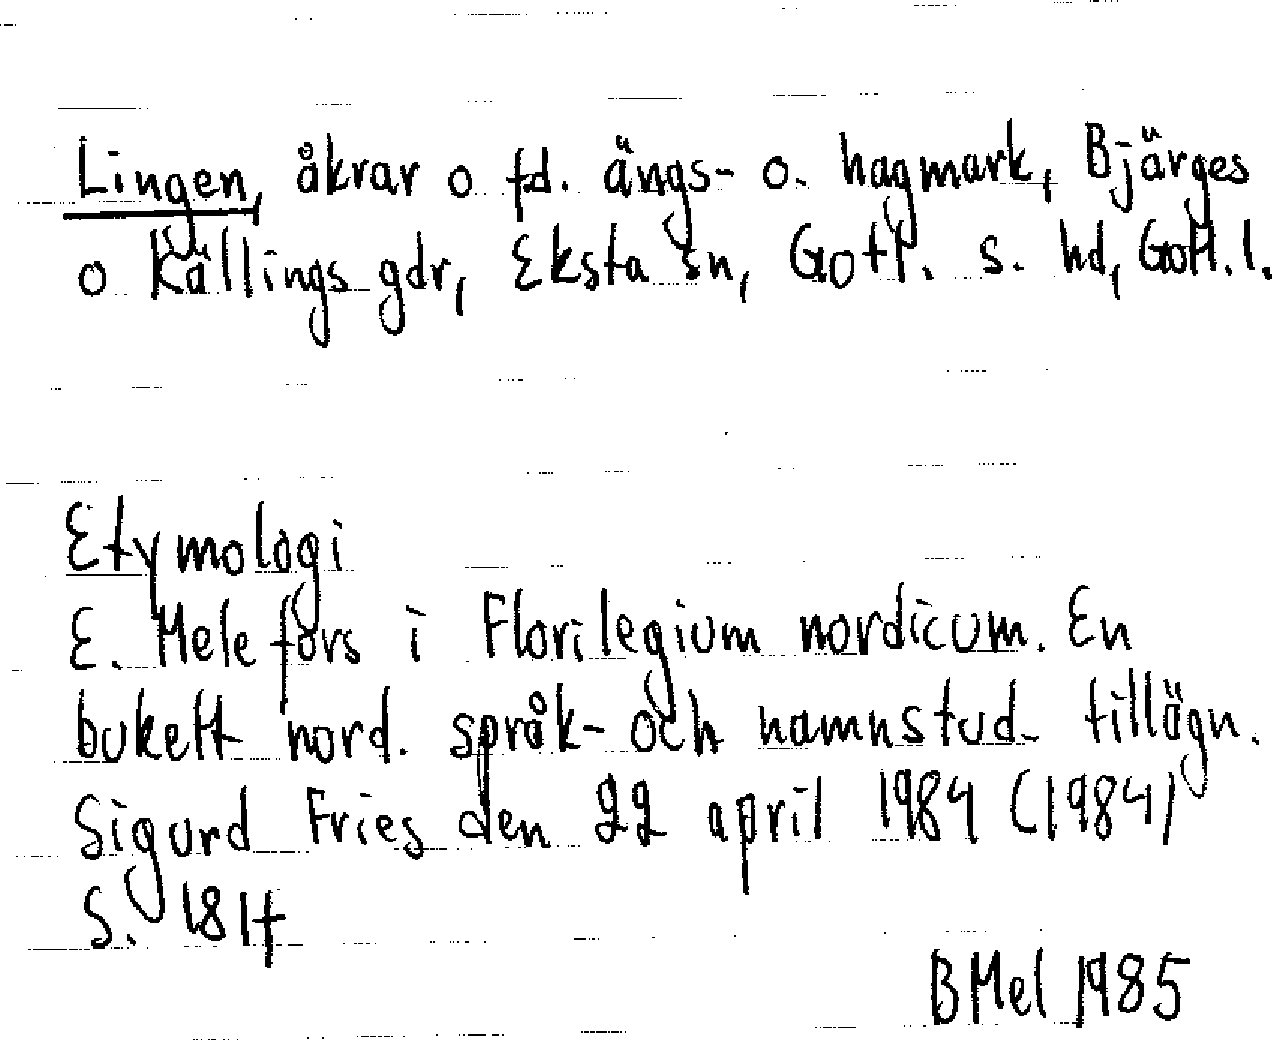 Lingen, åkrar o fd. ängs- o. hagmark, Bjärges
o Källings gdr, Eksta sn, Gotl. s. hd, Gotl. l.
Etymologi
E. Melefors i Florilegium nordicum. En
bukett nord. språk- och namnstud. tillägn.
Sigurd Fries den 22 april 1984 (1984)
S. 181f
BMel 1985